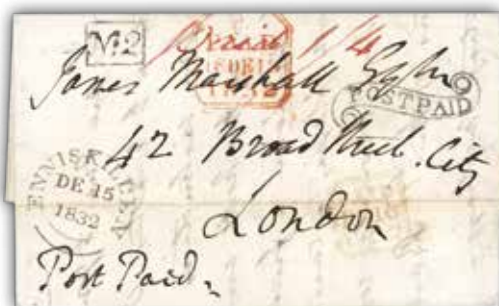 No. 2
Paid 1/4
James Marshall Esqre
POST PAID
42 Broad Street. City
ENNISKILLEN
DE 15
1832
London
Post Paid